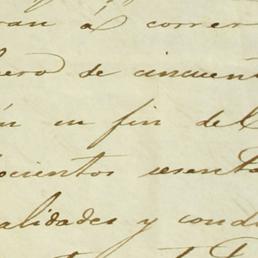 ran á correr
ero de cincuent
ún en fin del
ocientos sesenta
alidades y condi